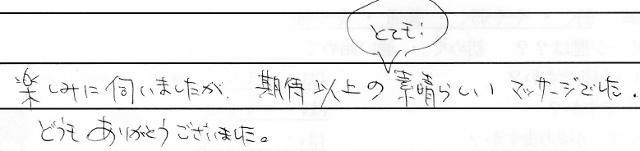 とても!
楽しみに伺いましたが、期待以上の素晴らしいマッサージでした.
どうもありがとうございました。